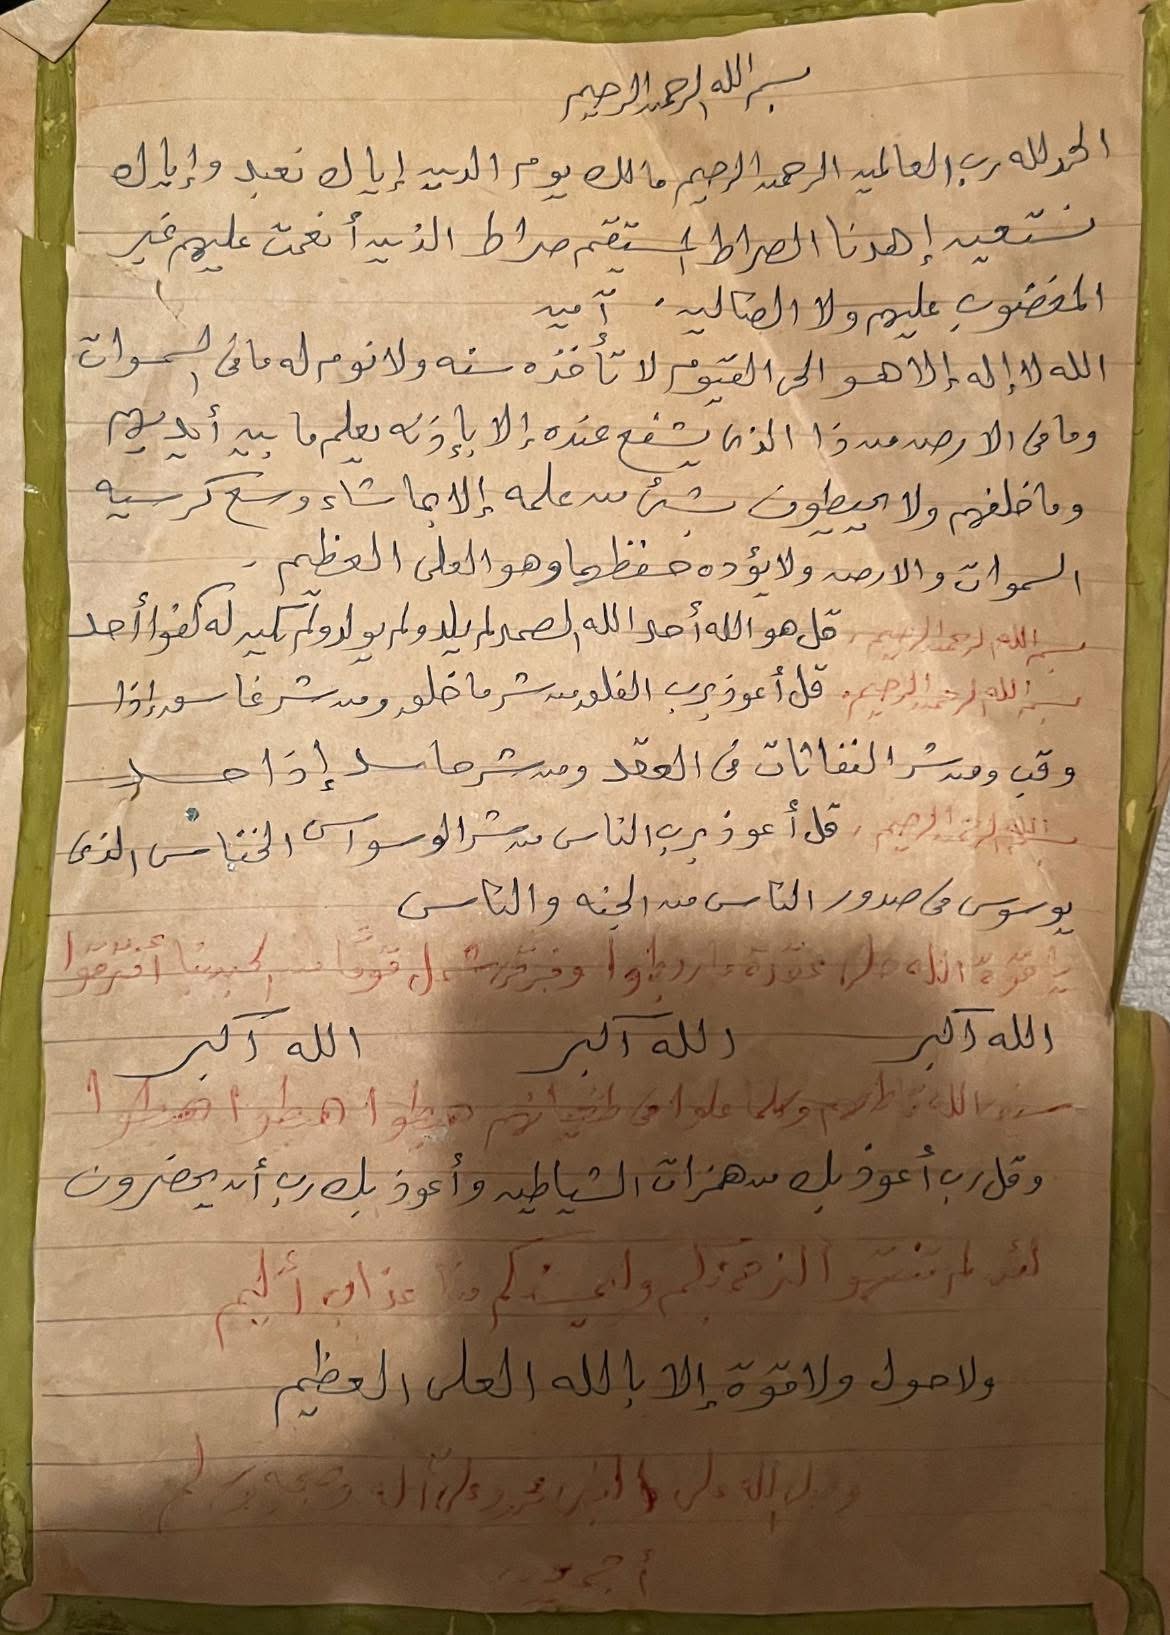 بسم الله الرحمن الرحيم
الحمد لله رب العالمين الرحمن الرحيم مالك يوم الدين إياك نعبد وإياك
نستعين إهدنا الصراط المستقيم صراط الذين أنعمت عليهم غير
المغضوب عليهم ولا الضالين . آمين
الله لا إله إلا هو الحى القيوم لا تأخذه سنه ولا نوم له ما فى السموات
وما فى الارض من ذا الذى يشفع عنده إلا بإذنه يعلم ما بين أيديهم
وما خلفهم ولا يحيطون بشئ من علمه إلا بما شاء وسع كرسيه
السموات والارض ولا يؤده حفظهما وهو العلى العظيم .
بسم الله الرحمن الرحيم . قل هو الله أحد الله الصمد لم يلد ولم يولد ولم يكن له كفوا أحد
بسم الله الرحمن الرحيم . قل أعوذ برب الفلق من شر ما خلق ومن شر غاسق إذا
وقب ومن شر النفاثات فى العقد ومن شر حاسد إذا حسد
بسم الله الرحمن الرحيم . قل أعوذ برب الناس من شر الوسواس الخناس الذى
يوسوس فى صدور الناس من الجنه والناس
الله
الله أكبر الله أكبر الله أكبر
الله وكلما علوا فى طغيانهم هبطوا هبطوا هبطوا
وقل رب أعوذ بك من همزات الشياطين وأعوذ بك رب أن يحضرون
لئن لم تنتهوا لنرجمنكم وليمسنكم منا عذاب أليم
ولا حول ولا قوة إلا بالله العلى العظيم
الله على وعلى آله وصحبه وسلم
أجمعين